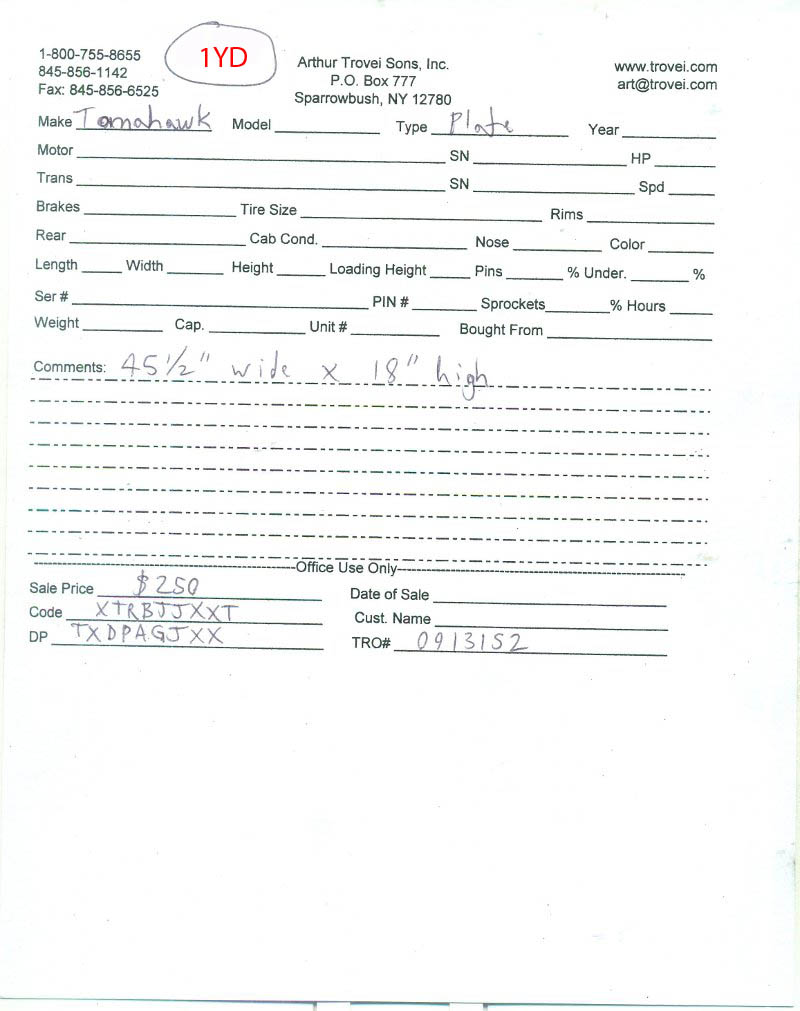 1-800-755-8655
845-856-1142
Fax: 845-856-6525
1YD
Arthur Trovei Sons, Inc.
P.O. Box 777
Sparrowbush, NY 12780
www.trovei.com
art@trovei.com
Make Tomahawk Model Type Plate Year
Motor SN HP
Trans SN Spd
Brakes Tire Size Rims
Rear Cab Cond. Nose Color
Length Width Height Loading Height Pins % Under. %
Ser # PIN # Sprockets % Hours
Weight Cap. Unit # Bought From
Comments: 45 1/2" wide x 18" high
Office Use Only
Sale Price $250 Date of Sale
Code XTRBJJXXT Cust. Name
DP TXDPAGJXX TRO# 0913152